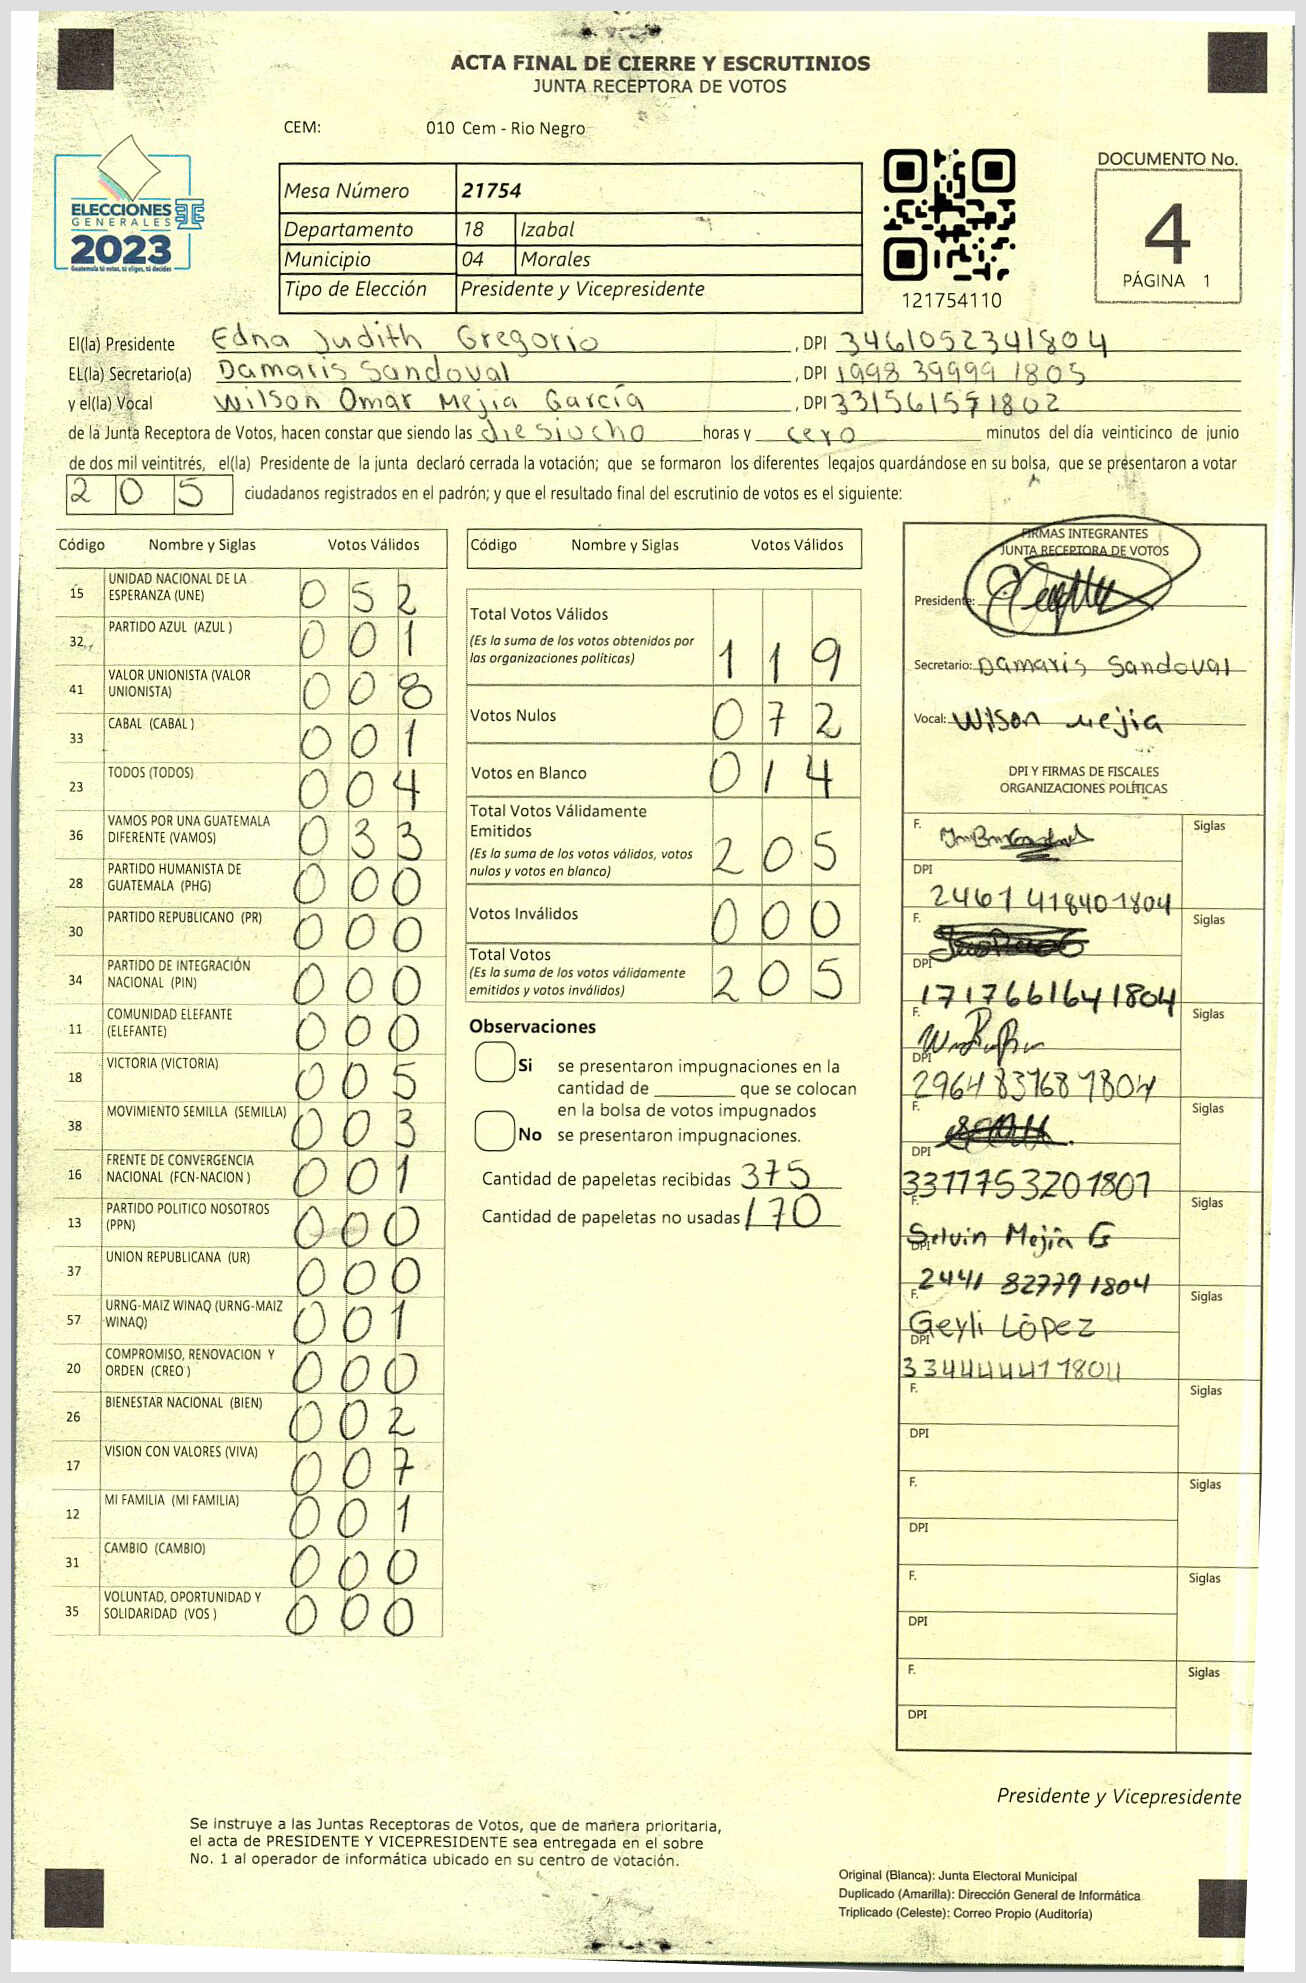 ACTA FINAL DE CIERRE Y ESCRUTINIOS
JUNTA RECEPTORA DE VOTOS
CEM: 010 Cem - Rio Negro
ELECCIONES
GENERALES
2023
Guatemala tú votas, tú eliges, tú decides
Mesa Número 21754
Departamento 18 Izabal
Municipio 04 Morales
Tipo de Elección Presidente y Vicepresidente
121754110
DOCUMENTO No.
4
PÁGINA 1
El(la) Presidente Edna Judith Gregorio , DPI 3461052341804
EL(la) Secretario(a) Damaris Sandoval , DPI 1998 39999 1805
y el(la) Vocal Wilson Omar Mejia García , DPI 3315615711802
de la Junta Receptora de Votos, hacen constar que siendo las diesiocho horas y cero minutos del día veinticinco de junio
de dos mil veintitrés, el(la) Presidente de la junta declaró cerrada la votación; que se formaron los diferentes legajos quardándose en su bolsa, que se presentaron a votar
205 ciudadanos registrados en el padrón; y que el resultado final del escrutinio de votos es el siguiente:
Código Nombre y Siglas Votos Válidos
15 UNIDAD NACIONAL DE LA ESPERANZA (UNE) 052
32 PARTIDO AZUL (AZUL ) 001
41 VALOR UNIONISTA (VALOR UNIONISTA) 008
33 CABAL (CABAL ) 001
23 TODOS (TODOS) 004
36 VAMOS POR UNA GUATEMALA DIFERENTE (VAMOS) 033
28 PARTIDO HUMANISTA DE GUATEMALA (PHG) 000
30 PARTIDO REPUBLICANO (PR) 000
34 PARTIDO DE INTEGRACIÓN NACIONAL (PIN) 000
11 COMUNIDAD ELEFANTE (ELEFANTE) 000
18 VICTORIA (VICTORIA) 005
38 MOVIMIENTO SEMILLA (SEMILLA) 003
16 FRENTE DE CONVERGENCIA NACIONAL (FCN-NACION ) 001
13 PARTIDO POLITICO NOSOTROS (PPN) 000
37 UNION REPUBLICANA (UR) 000
57 URNG-MAIZ WINAQ (URNG-MAIZ WINAQ) 001
20 COMPROMISO, RENOVACION Y ORDEN (CREO ) 000
26 BIENESTAR NACIONAL (BIEN) 002
17 VISION CON VALORES (VIVA) 007
12 MI FAMILIA (MI FAMILIA) 001
31 CAMBIO (CAMBIO) 000
35 VOLUNTAD, OPORTUNIDAD Y SOLIDARIDAD (VOS ) 000
Código Nombre y Siglas Votos Válidos
Total Votos Válidos 119
(Es la suma de los votos obtenidos por
las organizaciones políticas)
Votos Nulos 072
Votos en Blanco 014
Total Votos Válidamente
Emitidos 205
(Es la suma de los votos válidos, votos
nulos y votos en blanco)
Votos Inválidos 000
Total Votos 205
(Es la suma de los votos válidamente
emitidos y votos inválidos)
Observaciones
Si se presentaron impugnaciones en la
cantidad de ________ que se colocan
en la bolsa de votos impugnados
No se presentaron impugnaciones.
Cantidad de papeletas recibidas 375
Cantidad de papeletas no usadas 170
FIRMAS INTEGRANTES
JUNTA RECEPTORA DE VOTOS
Presidente:
Secretario: Damaris Sandoval
Vocal: Wilson Mejia
DPI Y FIRMAS DE FISCALES
ORGANIZACIONES POLÍTICAS
F. Siglas
DPI
2461 418401804
F. Siglas
DPI
1717661641804
F. Siglas
DPI
2964837681804
F. Siglas
DPI
3377753201801
F. Selvin Mejia G Siglas
DPI
2441 827791804
F. Geyli López Siglas
DPI
3344444171804
F. Siglas
DPI
F. Siglas
DPI
F. Siglas
DPI
F. Siglas
DPI
Presidente y Vicepresidente
Se instruye a las Juntas Receptoras de Votos, que de manera prioritaria,
el acta de PRESIDENTE Y VICEPRESIDENTE sea entregada en el sobre
No. 1 al operador de informática ubicado en su centro de votación.
Original (Blanca): Junta Electoral Municipal
Duplicado (Amarilla): Dirección General de Informática
Triplicado (Celeste): Correo Propio (Auditoría)